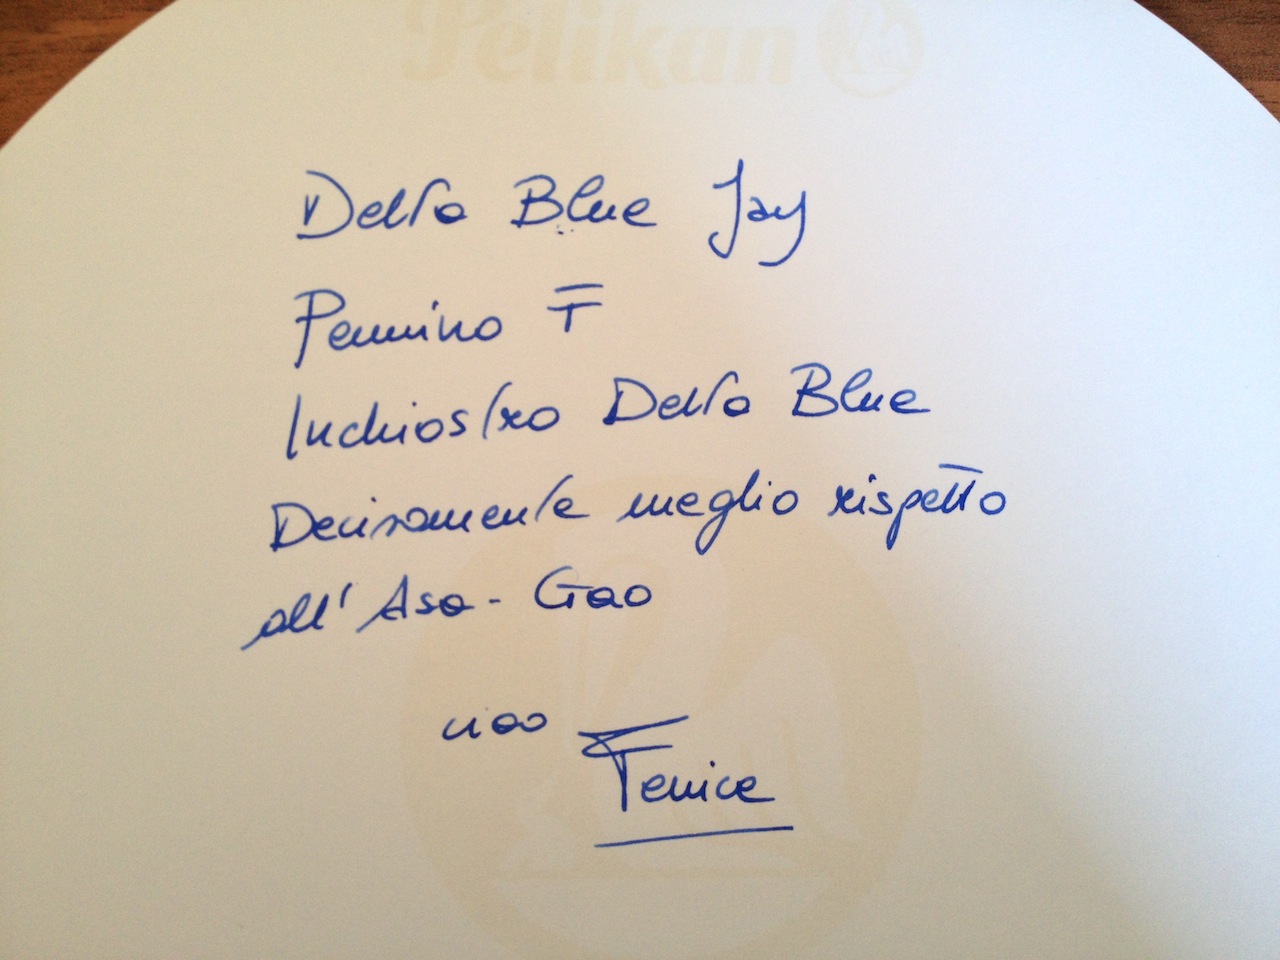 Pelikan
Delta Blue Jay
Pennino F
Inchiostro Delta Blue
Decisamente meglio rispetto
all' Asa-Gao
ciao
Fenice